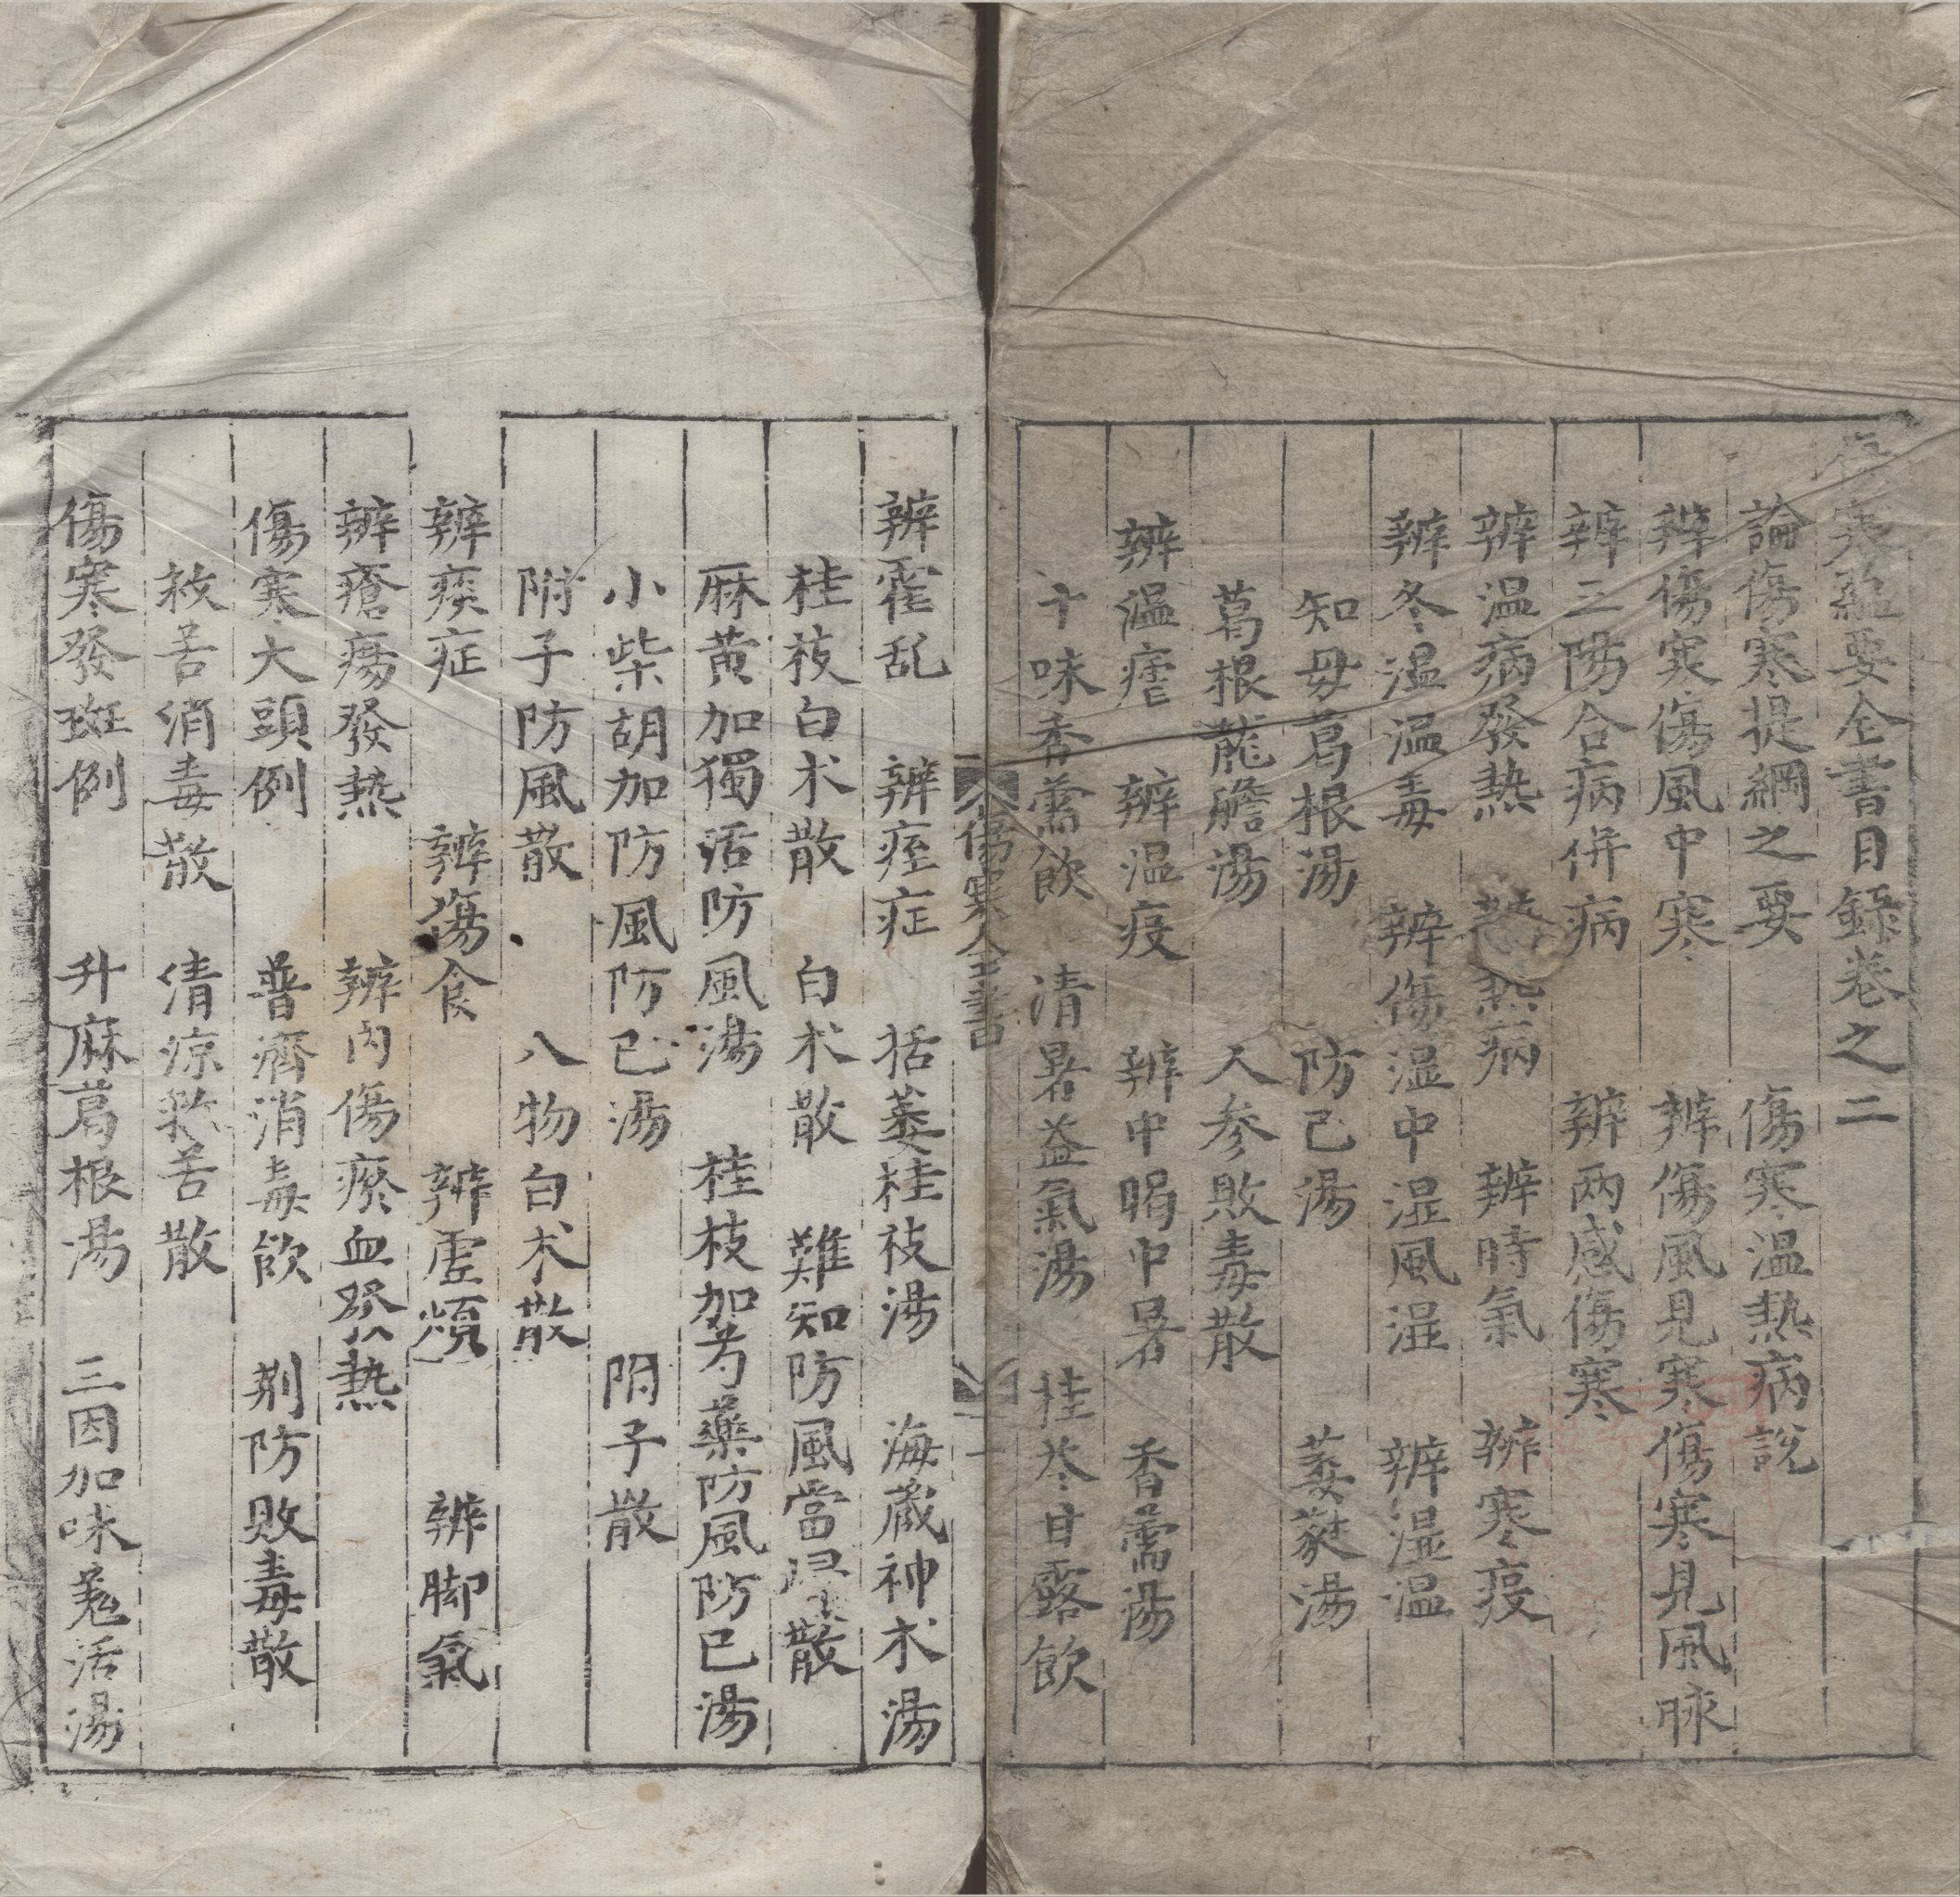 寒蘊要全書目錄卷之二
論傷寒提綱之要 傷寒温熱病說
辨傷寒傷風中寒 辨傷風見寒傷寒見風脉
辨三陽合病併病 辨两感傷寒
辨温病發熱 熱病 辨時氣 辨寒疫
辨冬温温毒 辨傷湿中湿風湿 辨湿温
知母葛根湯 防己湯 萎蕤湯
葛根龍膽湯 人参敗毒散
辨温瘧 辨温疫 辨中暍中暑 香薷湯
十味香薷飲 清暑益氣湯 桂苓甘露飲
傷寒全書 一
辨霍乱 辨痓症 括蔞桂枝湯 海蔵神术湯
桂枝白术散 白术散 難知防風當歸散
麻黄加獨活防風湯 桂枝加芍藥防風防已湯
小柴胡加防風防已湯 附子散
附子防風散 八物白术散
辨痰症 辨傷食 辨虚煩 辨脚氣
辨瘡瘍發熱 辨内傷瘀血發熱
傷寒大頭例 普濟消毒飲 荆防敗毒散
救苦消毒散 清凉救苦散
傷寒發斑例 升麻葛根湯 三因加味羗活湯